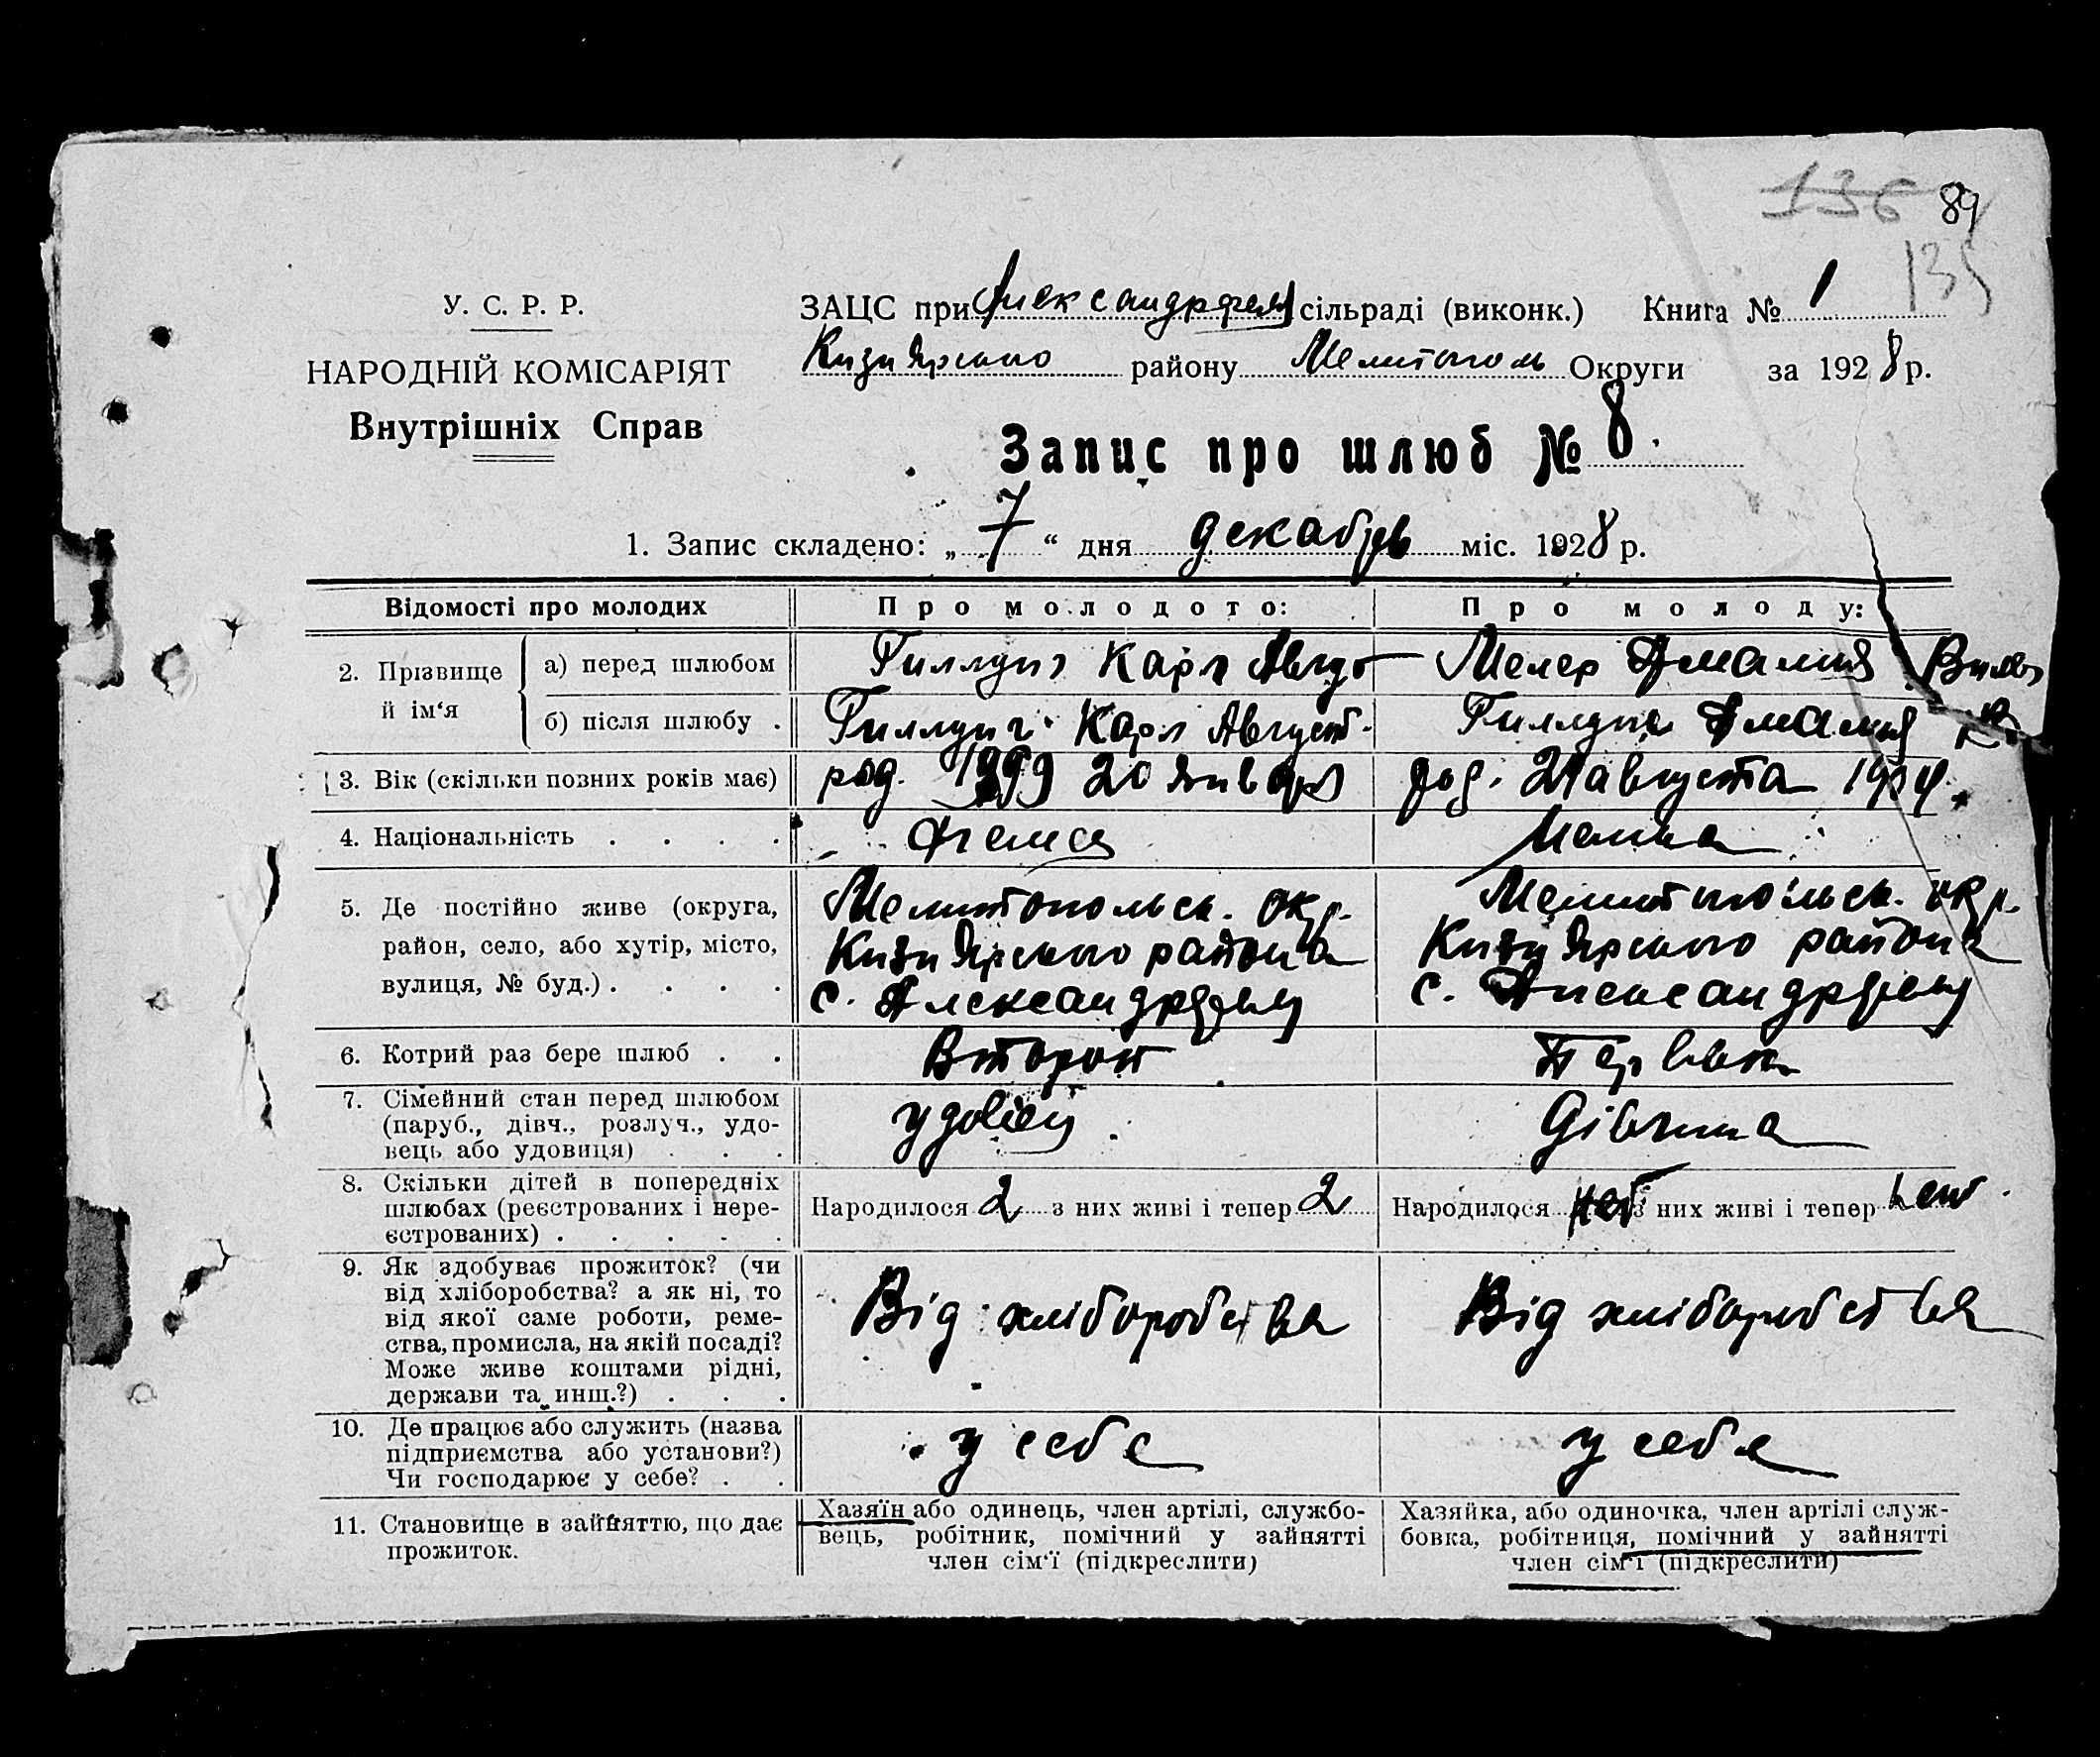 136 89
135
У. С. Р. Р.
НАРОДНІЙ КОМІСАРІЯТ
Внутрішніх Справ
ЗАЦС при Александрфельд сільраді (виконк.) Книга № 1
Кизи Ярского району Мелитополь Округи за 1928 р.
Запис про шлюб № 8.
1. Запис складено: „ 7 “ дня декабря міс. 1928 р.
Відомості про молодих
Про молодого:
Про молоду:
2. Прізвище й ім‘я
а) перед шлюбом
Гиллунг Карл Август
Мелер Амалия Вильг
б) після шлюбу .
Гиллунг Карл Август.
Гиллунг Амалия
3. Вік (скільки повних років має)
род. 1899 20 января
род. 21 августа 1904
4. Національність . . . .
Немец
Немка
5. Де постійно живе (округа,
район, село, або хутір, місто,
вулиця, № буд.) . . . .
Мелитопольск. окр.
Кизи Ярского района
с. Александрфельд
Мелитопольск. окр.
Кизи Ярского района
с. Александрфельд
6. Котрий раз бере шлюб . .
Второй
Первый
7. Сімейний стан перед шлюбом
(паруб., дівч., розлуч., удо-
вець або удовиця) . . .
удовец
Дівчина
8. Скільки дітей в попередніх
шлюбах (реєстрованих і нере-
єстрованих) . . . . .
Народилося 2 з них живі і тепер 2
Народилося нет з них живі і тепер нет.
9. Як здобуває прожиток? (чи
від хліборобства? а як ні, то
від якої саме роботи, реме-
ства, промисла, на якій посаді?
Може живе коштами рідні,
держави та инш.?) . . .
Від хліборобства
Від хліборобства
10. Де працює або служить (назва
підприємства або установи?)
Чи господарює у себе? . .
у себе
у себе
11. Становище в зайняттю, що дає
прожиток.
Хазяїн або одинець, член артілі, службо-
вець, робітник, помічний у зайнятті
член сім‘ї (підкреслити)
Хазяйка, або одиночка, член артілі служ-
бовка, робітниця, помічний у зайнятті
член сім‘ї (підкреслити)